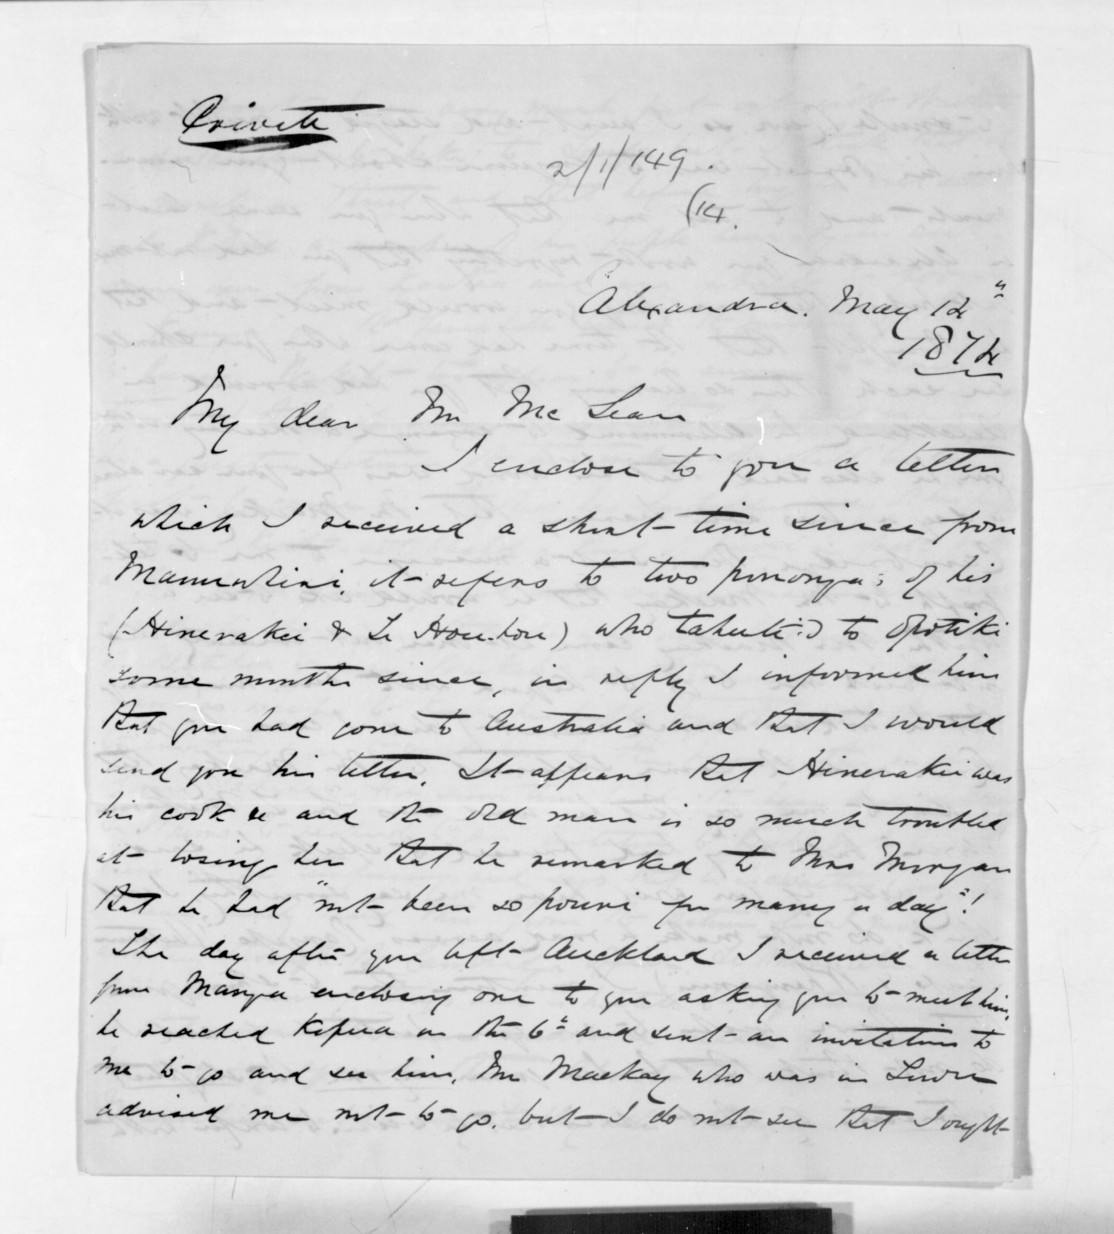 Private
2/1/149.
(14.
Alexandra. May 12"
1874
My dear Mr McLean
I enclose to you a letter
which I received a short time since from
Manuwhiri, it refers to two pononga's of his
(Hinerakei & Te Hou-hou) who tahuti'd to Opotiki
some months since, in reply I informed him
that you had gone to Australia and that I would
send you his letter. It appears that Hinerakei was
his cook and the old man is so much troubled
at losing her that he remarked to Mrs Morgan
that he had "not been so pouri for many a day"!
The day after you left Auckland I received a letter
from Manga enclosing one to you asking you to meet him,
he reached Kopua on the 6th and sent an invitation to
me to go and see him. Mr Mackay who was in Town
advised me not to go. but I do not see that I ought